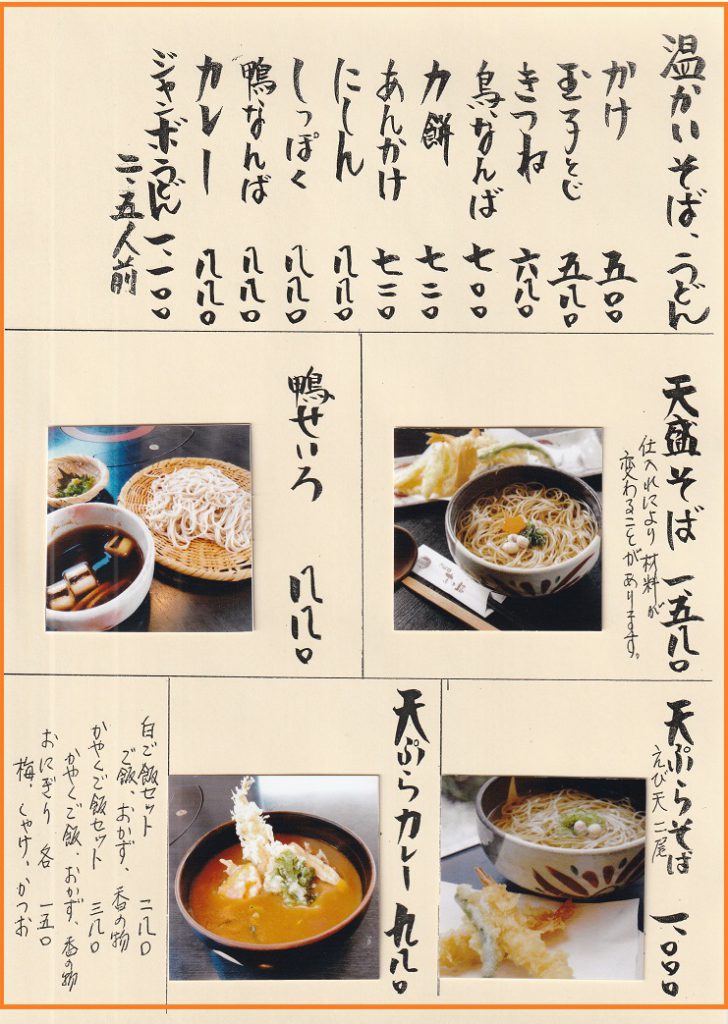 温かいそば、うどん
かけ 五〇〇
玉子とじ 五八〇
きつね 六八〇
鳥なんば 七〇〇
力餅 七二〇
あんかけ 七二〇
にしん 八八〇
しっぽく 八八〇
鴨なんば 八八〇
カレー 八八〇
ジャンボうどん 一、一〇〇
二、五人前
天盛そば 一、五八〇
仕入れにより材料が
変わることがあります。
鴨せいろ 八八〇
天ぷらそば 一、〇〇〇
えび天二尾
天ぷらカレー 九八〇
白ご飯セット 二八〇
ご飯、おかず、香の物
かやくご飯セット 三八〇
かやくご飯、おかず、香の物
おにぎり 各 一五〇
梅、しゃけ、かつお